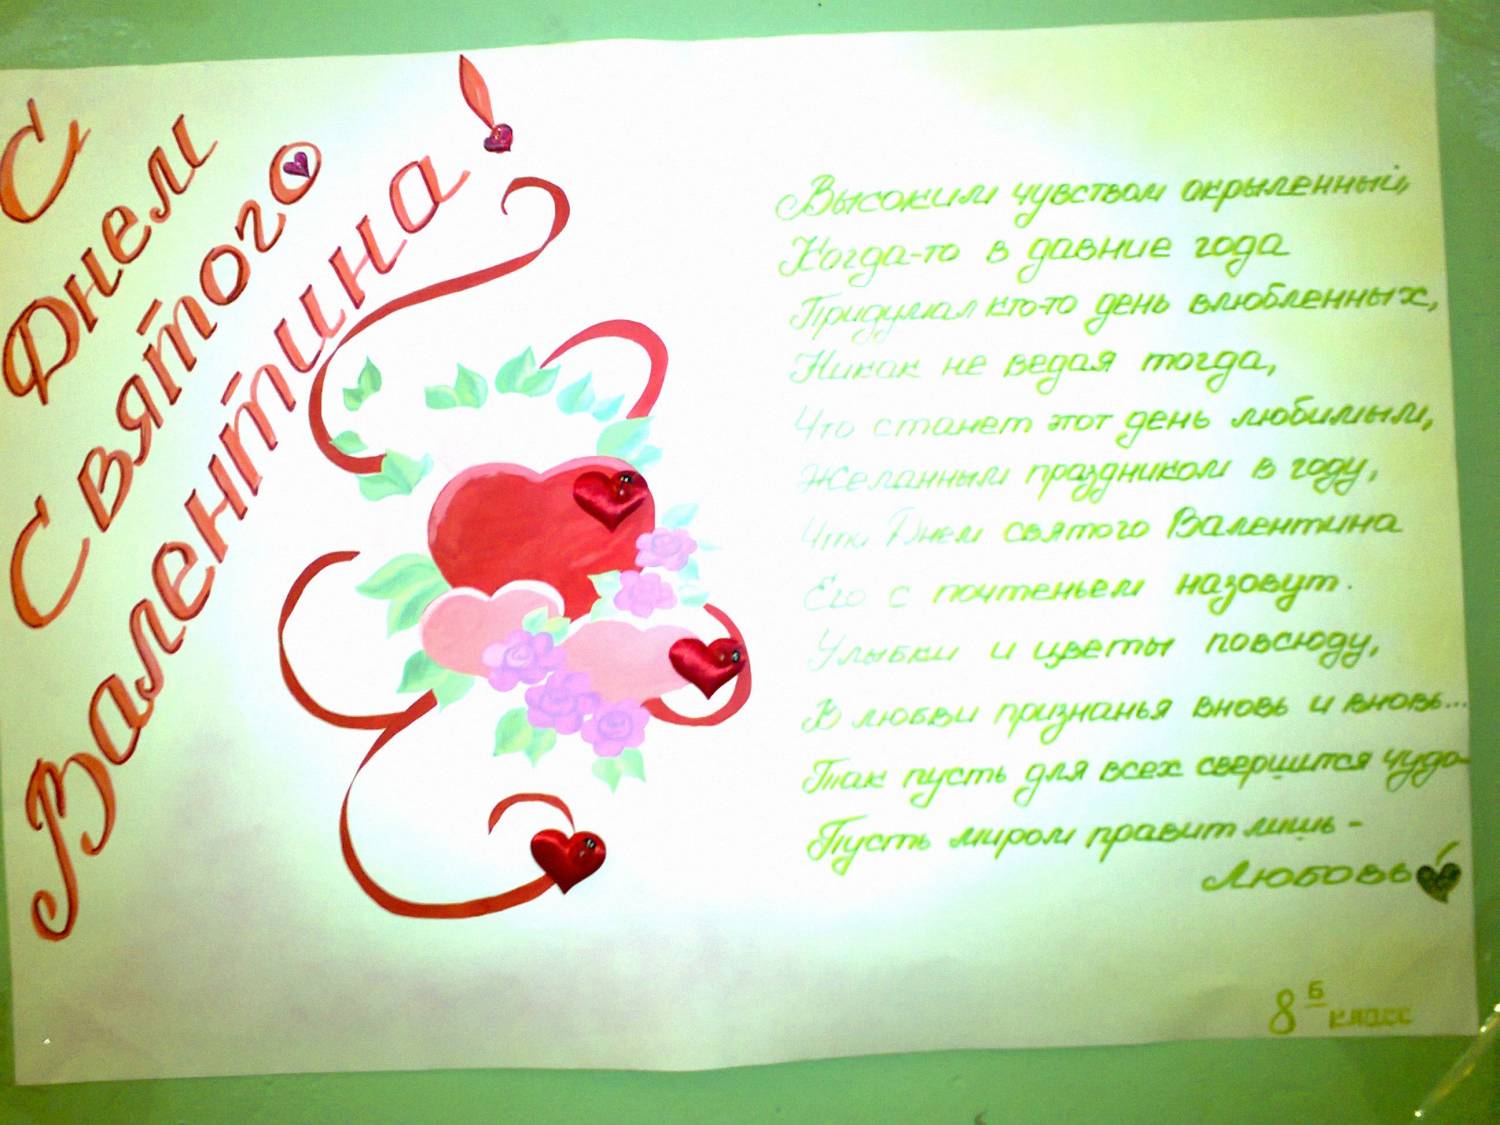 С
Днем
Святого
Валентина!
Высоким чувством окрыленный,
Когда-то в давние года
Придумал кто-то день влюбленных,
Никак не ведая тогда,
Что станет этот день любимым,
Желанным праздником в году,
Что Днем святого Валентина
Его с почтеньем назовут.
Улыбки и цветы повсюду,
В любви признанья вновь и вновь...
Так пусть для всех свершится чудо-
Пусть миром правит лишь -
Любовь!
8 Б класс